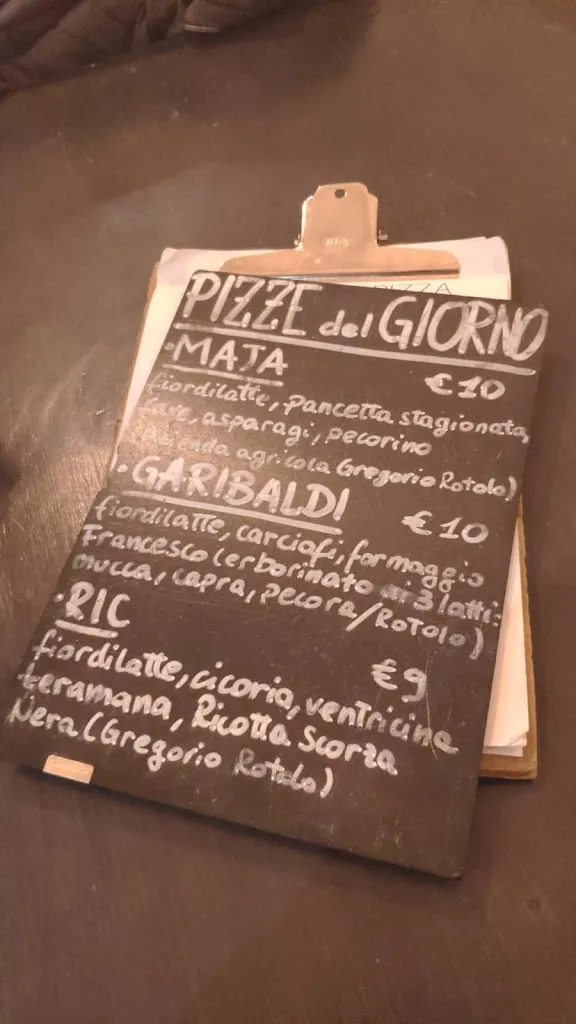 PIZZA
PIZZE del GIORNO
· MAJA €10
fiordilatte, pancetta stagionata,
fave, asparagi, pecorino
(azienda agricola Gregorio Rotolo)
· GARIBALDI €10
fiordilatte, carciofi, formaggio
Francesco (erborinato ai 3 latti:
mucca, capra, pecora/ROTOLO)
· RIC €9
fiordilatte, cicoria, ventricina
teramana, Ricotta Scorza
Nera (Gregorio Rotolo)